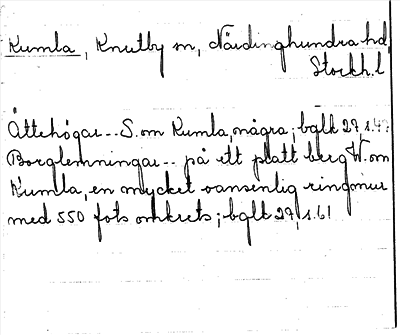 Kumla, Knutby sn, Närdinghundra hd,
Stockh. l
Ättehögar -- S. om Kumla, några; bglk 29, s. 4
Borglemningar -- på ett platt berg W. om
Kumla, en mycket oansenlig ringmur
med 550 fots omkrets; bglk 29, s. 61